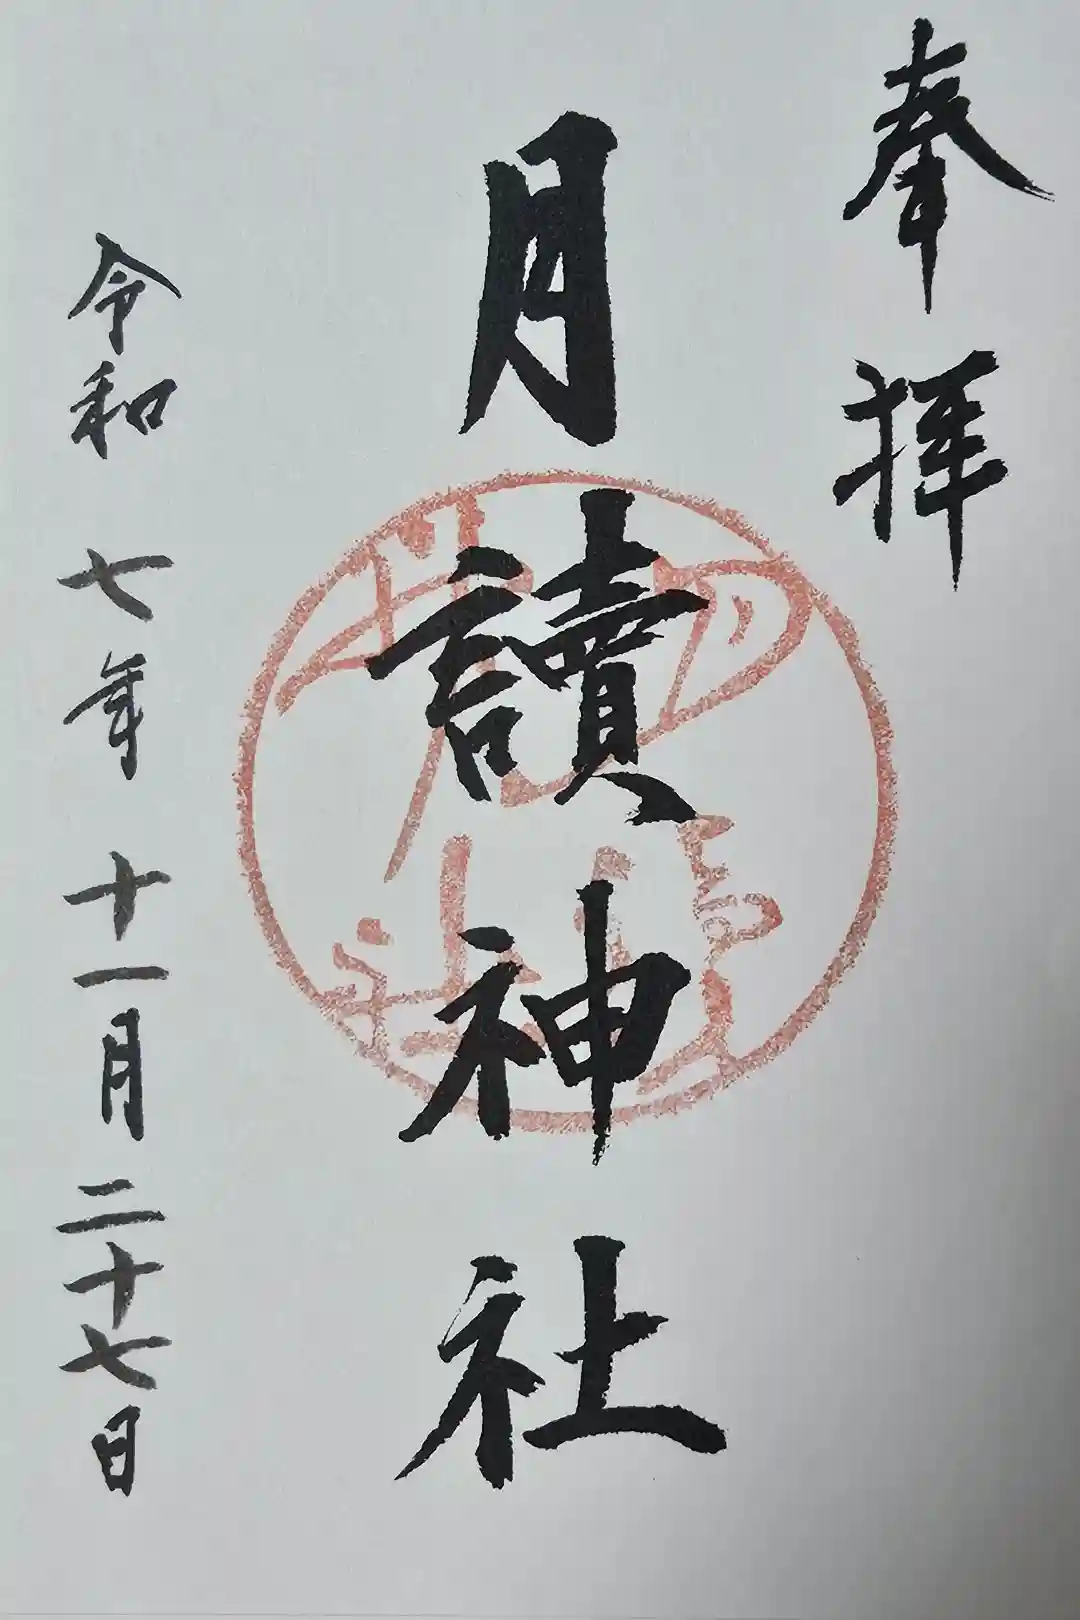 奉拝
月讀神社
令和七年十一月二十七日